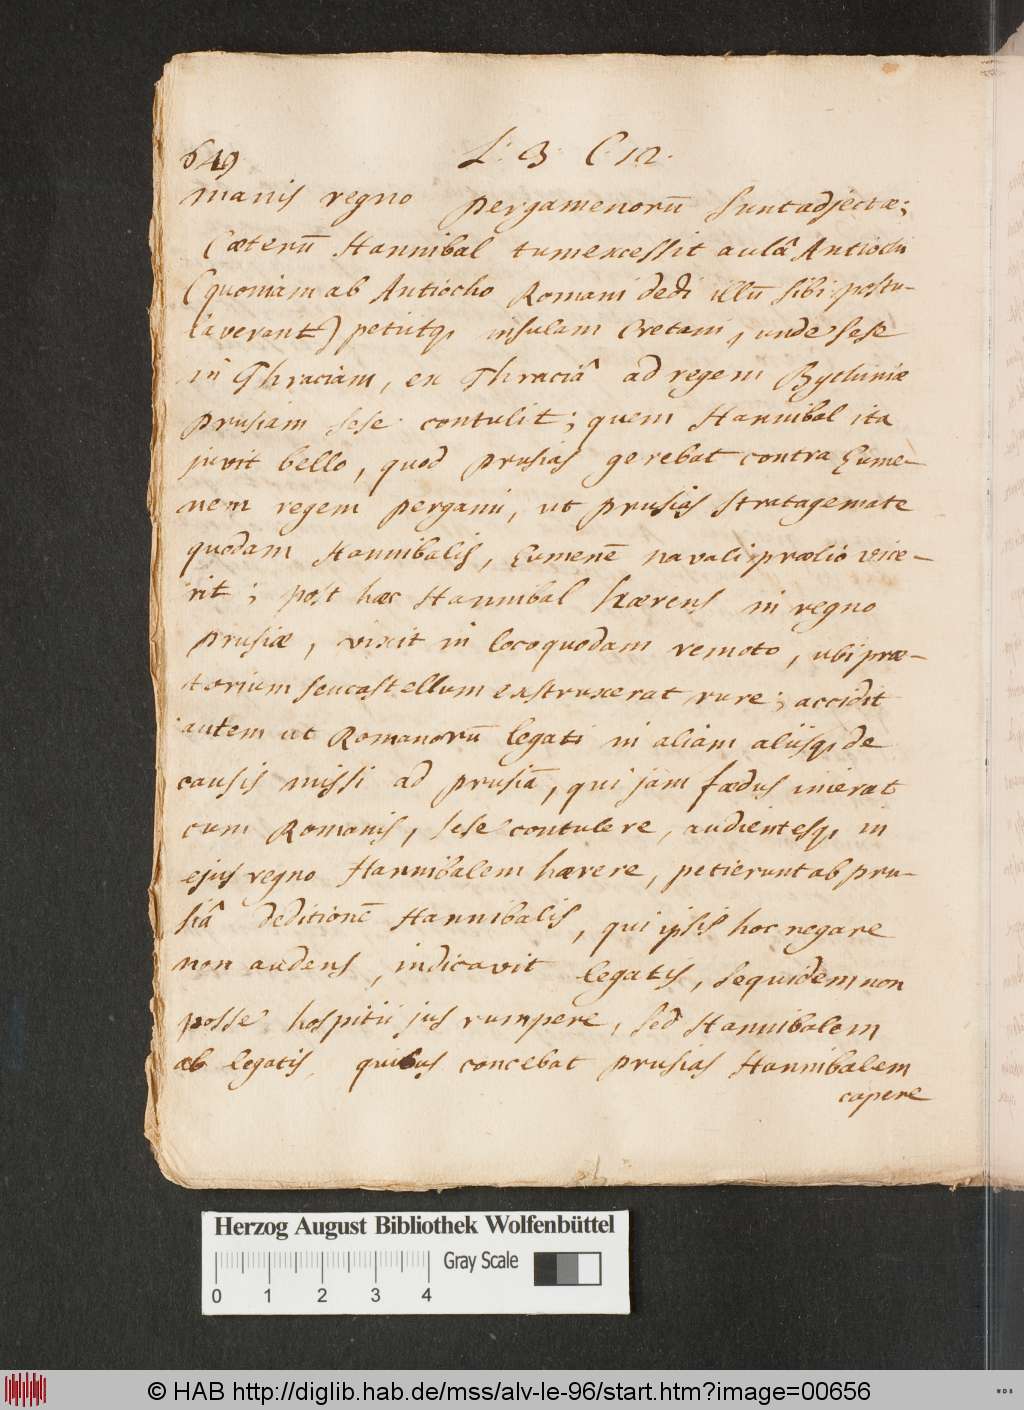 649
L: 3. C 12.
manis regno pergamenorū sunt adjectæ;
Cæterū Hannibal tum excessit aulâ Antiochi
(quoniam ab Antiocho Romani dedi illū sibi postu-
laverant) petiitq, insulam Cretam, unde sese
in Thraciam, ex Thraciâ ad regem Bythiniæ
prusiam sese contulit; quem Hannibal ita
juvit bello, quod prusias gerebat contra Eume-
nem regem pergami, ut prusias stratagemate
quodam Hannibalis, Eumenē navali prælio vice-
rit; post hæc Hannibal hærens in regno
prusiæ, vixit in loco quodam remoto, ubi præ-
torium seu castellum exstruxerat rure; accidit
autem ut Romanorū legati in aliam aliisq, de
causis missi ad prusiā, qui jam fædus inierat
cum Romanis, sese contulere, audientesq, in
ejus regno Hannibalem hærere, petierunt ab pru-
siâ deditionē Hannibalis, qui ipsis hoc negare
non audens, indicavit legatis, se quidem non
posse hospitii jus rumpere, sed Hannibalem
ab legatis, quibus concebat prusias Hannibalem
capere
Herzog August Bibliothek Wolfenbüttel
Gray Scale
0 1 2 3 4
© HAB http://diglib.hab.de/mss/alv-le-96/start.htm?image=00656